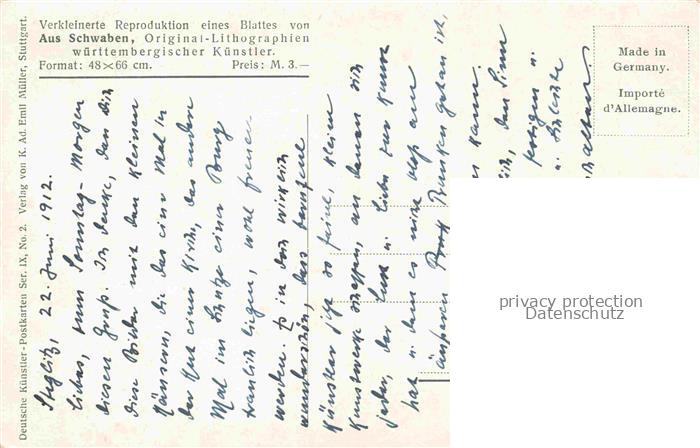 Verkleinerte Reproduktion eines Blattes von
Aus Schwaben, Original-Lithographien
württembergischer Künstler.
Format: 48×66 cm. Preis: M. 3.—
Deutsche Künstler-Postkarten Ser. IX, No. 2. Verlag von K. Ad. Emil Müller, Stuttgart.
Made in
Germany.
Importé
d'Allemagne.
Steglitz, 22. Juni 1912.
Liebes, zum Sonntag-Morgen
diesen Gruß. Ich denke, daß Dich
diese Bilder mit den kleinen
Häusern, die das eine Mal in
der Hut einer Kirche, das andere
Mal im Schutze einer Burg
traulich liegen, wohl freuen
werden. Es ist doch wirklich
wundervoll, dass
Künstler jetzt so feine, kleine
Kunstwerke schaffen, an denen sich
jeder, der Lust u. Liebe zur Kunst
hat u. dem es nicht bloß am
äußeren Prunken getan ist,
kann.
den Sinn
festigen u.
u.
privacy protection
Datenschutz